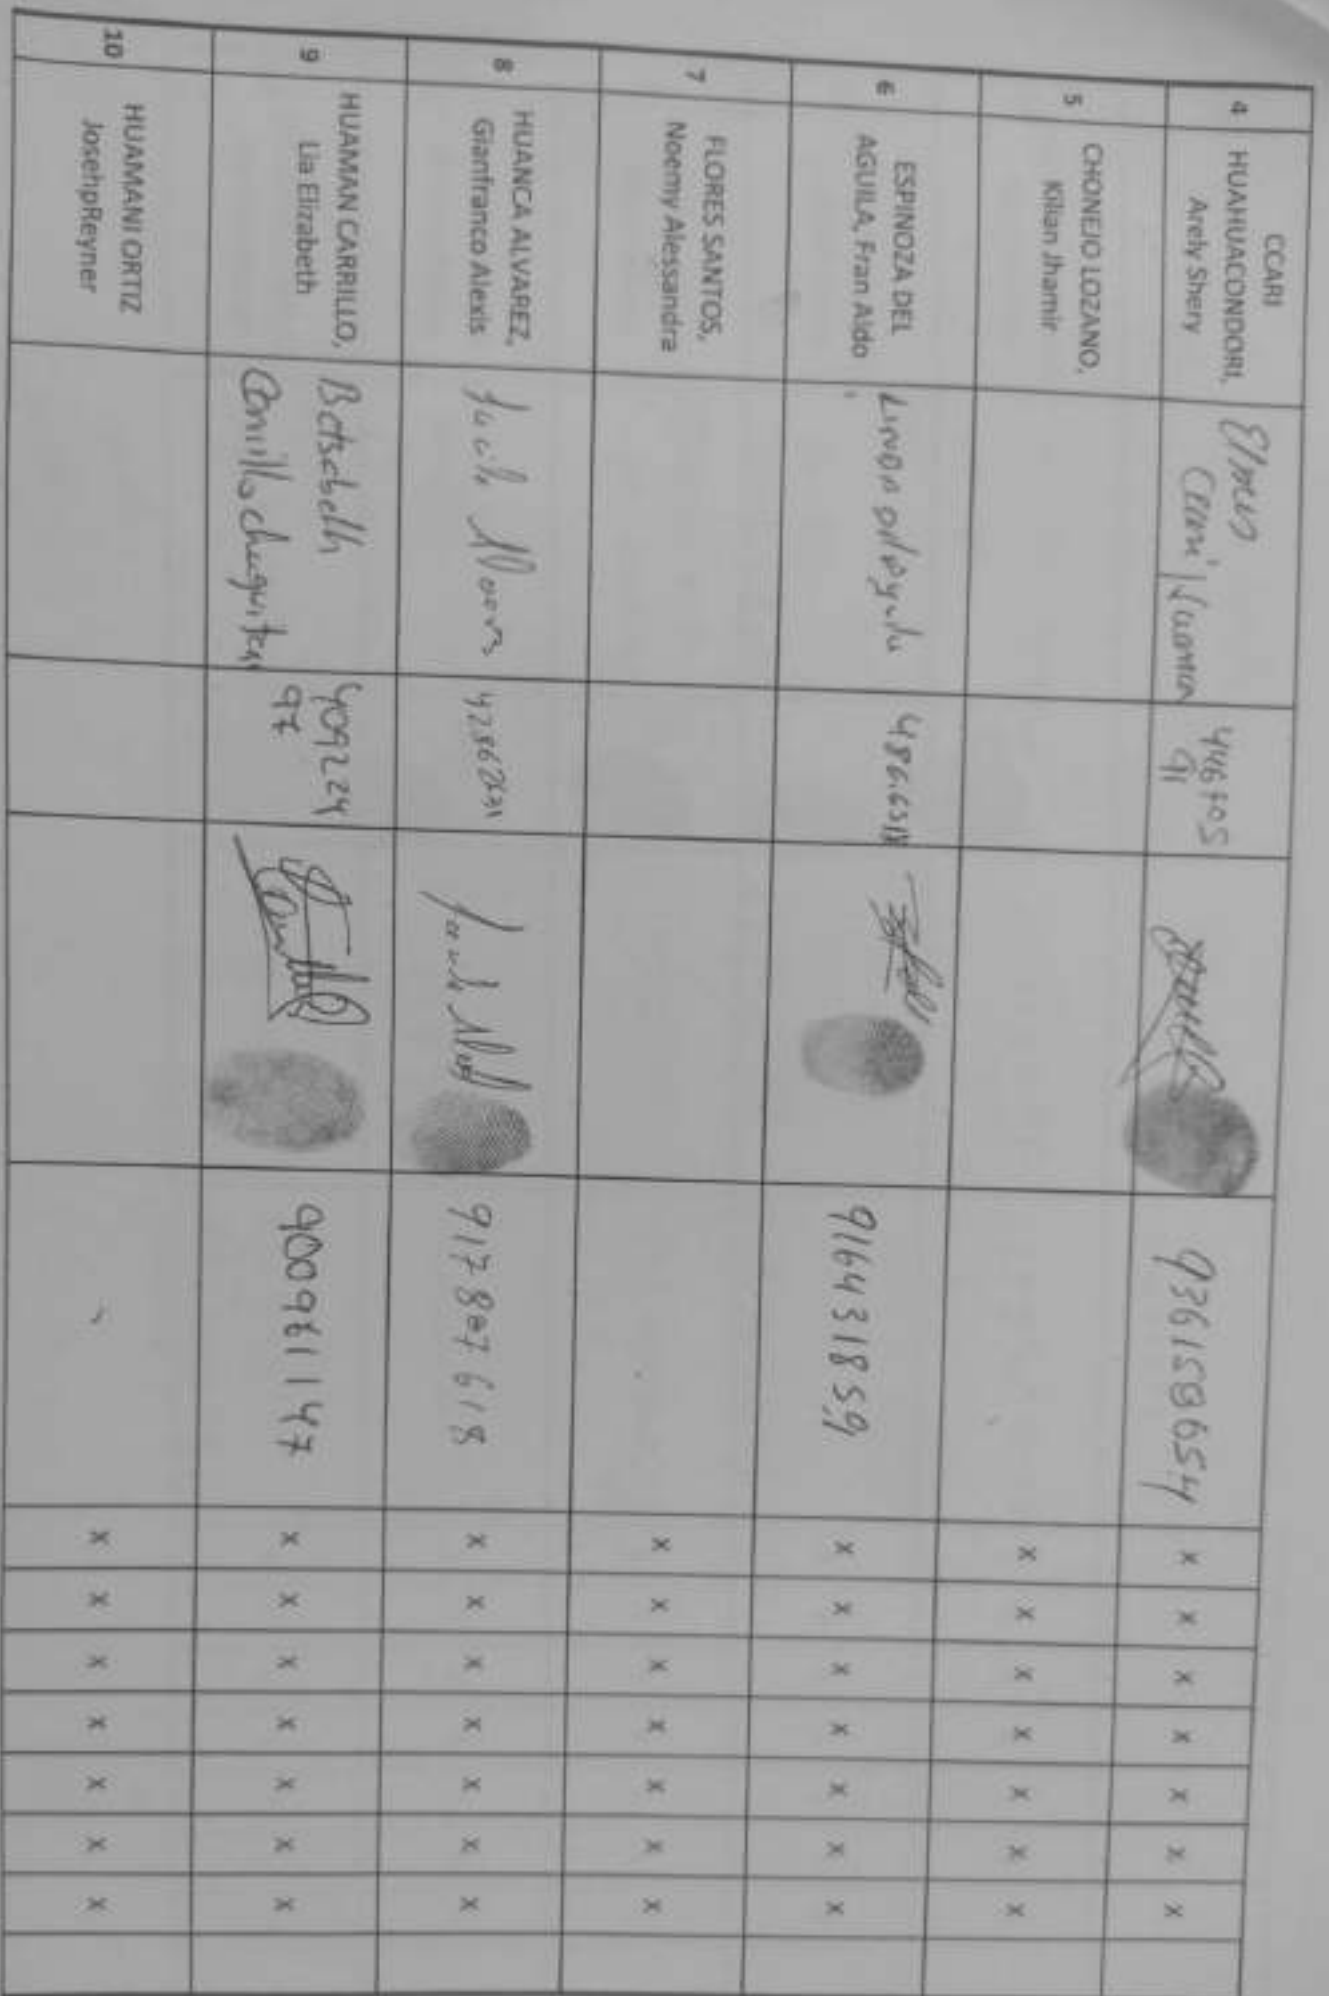 4
CCARI
HUAHUACONDORI,
Arely Shery
Elmer
Ccari Huaman
446705
91
936158654
x x x x x x x
5
CHONEJO LOZANO,
Kilian Jhamir
x x x x x x x
6
ESPINOZA DEL
AGUILA, Fran Aldo
916431859
x x x x x x x
7
FLORES SANTOS,
Noemy Alessandra
x x x x x x x
8
HUANCA ALVAREZ,
Gianfranco Alexis
917887618
x x x x x x x
9
HUAMAN CARRILLO,
Lia Elizabeth
Betsabeth
Carrillo
409224
97
900961147
x x x x x x x
10
HUAMANI ORTIZ
JosehpReyner
x x x x x x x